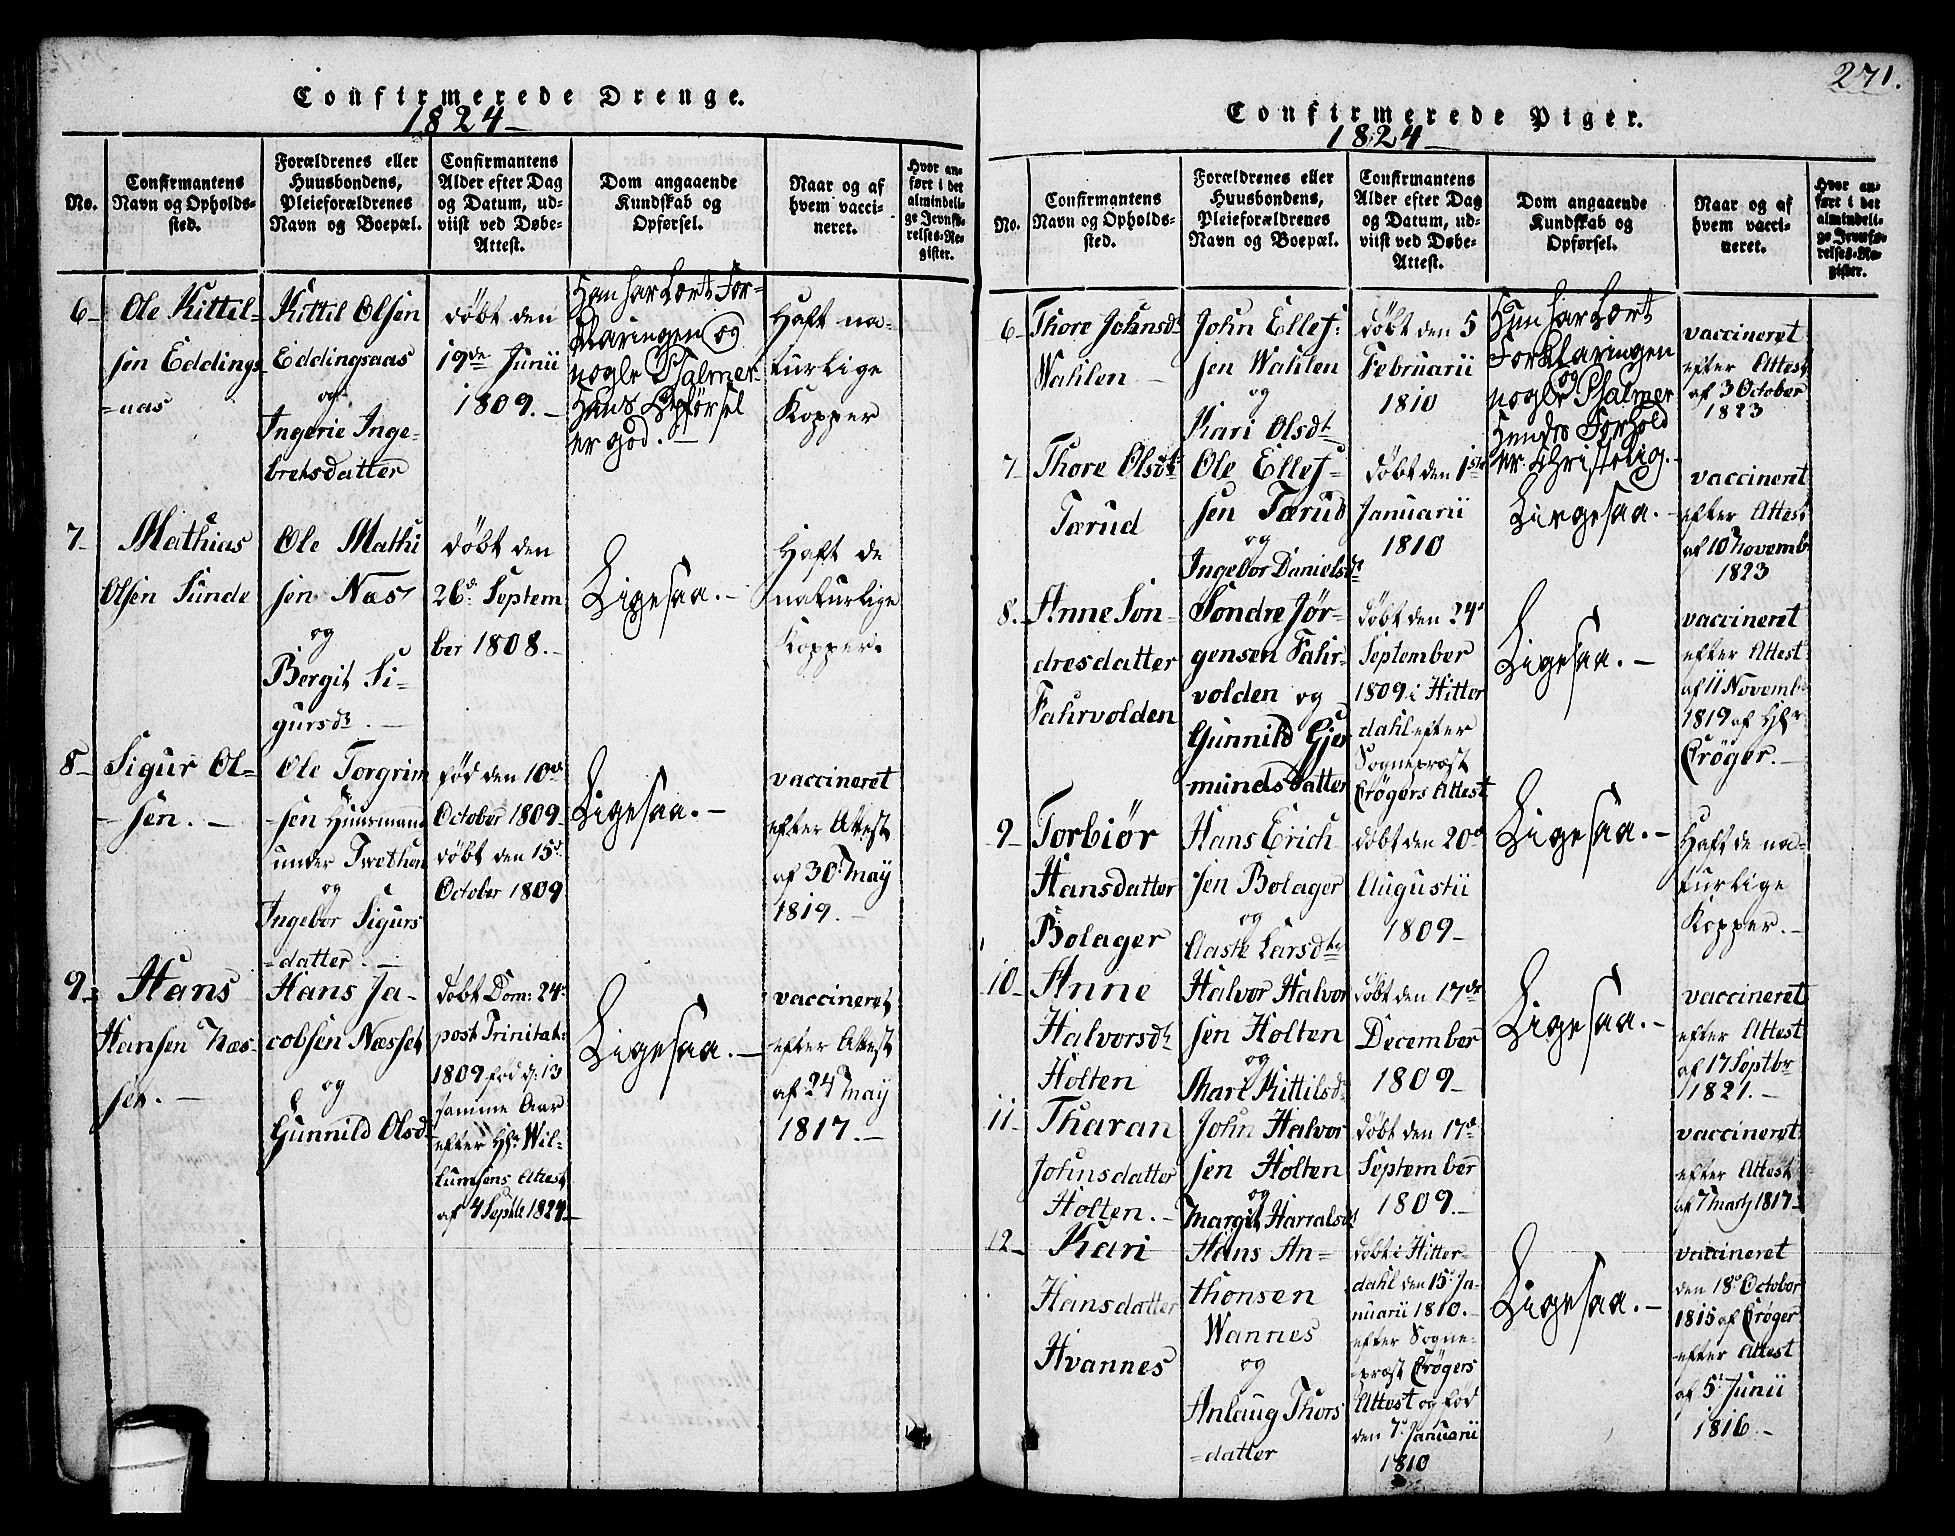 Confirmerede Drenge.
1824
No.
Confirmantens
Navn og Opholds-
sted.
Forældrenes eller
Huusbondens,
Pleieforældrenes
Navn og Boepæl.
Confirmantens
Alder efter Dag
og Datum, ud-
viist ved Døbe-
Attest.
Dom angaaende
Kundskab og
Opførsel.
Naar og af
hvem vacci-
neret.
Hvor an-
ført i det
almindeli-
ge Jevnfø-
relses-Re-
gister.
6-
Ole Kittil-
sen Eddings
=aas
Kittil Olsen
Eddingsaas
og
Ingerie Inge-
bretsdatter
døbt den
19de Junii
1809.-
Han har Lært For-
klaringen og
nogle Psalmer-
Hans Opførsel
er god.-
Haft na-
turlige
Kopper
7-
Mathias
Olsen Sunde
Ole Mathi
sen Næs
og
Bergit Si-
gursdr.-
døbt den
26d Septem
ber 1808.-
Ligesaa.-
Haft de
naturlige
Kopper.
8-
Sigur Ol-
-sen.-
Ole Torgrim
-sen Huusmand
under Twethen
og
Ingebor Sigurs
=datter.-
fød den 10de
October 1809-
døbt den 15d
October 1809
Ligesaa.-
vaccineret
efter Attest
af 30 May
1819.-
9-
Hans
Hansen Næs-
set.-
Hans Ja-
cobsen Næsset
og
Gunnild Olsd
døbt Dom: 24d
post Trinitat:
1809 fød d: 13
samme Aar
efter Hr: Wil-
lumsens Attest
af 4 Septbr 1824-
Ligesaa.-
vaccineret
efter Attest
af 24 May
1817.-
271.
Confirmerede Piger.
1824
No.
Confirmantens
Navn og Opholds-
sted.
Forældrenes eller
Huusbondens,
Pleieforældrenes
Navn og Boepæl.
Confirmantens
Alder efter Dag
og Datum, ud-
viist ved Døbe-
Attest.
Dom angaaende
Kundskab og
Opførsel.
Naar og af
hvem vacci-
neret.
Hvor an-
ført i det
almindeli-
ge Jevnfø-
relses-Re-
gister.
6-
Thore Johnsdr
Wahlen -
John Ellef-
sen Wahlen
og
Kari Olsdr
døbt den 5
Februarii
1810
Hun har Lært
Forklaringen
og
nogle Psalmer
Hendes Forhold
er Christelig.-
vaccineret
efter Attest
af 3 October
1823
7-
Thore Olsdr
Tærud
Ole Ellef-
sen Tærud
og
Ingebor Danielsdr
døbt den 1ste
Januarii
1810
Ligesaa.-
vaccineret
efter Attest
af 10 Novemb
1823
8.
Anne Son-
dresdatter
Fahrvolden
Sondre Jør-
gensen Fahr-
volden og
Gunnild Gjer
mundsdatter
døbt den 24d
September
1809 i Hitter
dahl efter
Sogneprøst
Crøgers Attest
Ligesaa.-
vaccineret
efter Attest
af 11 Novemb
1819 af Hr
Crøger.-
9-
Torbiør
Hansdatter
Bolager
Hans Erich
sen Bolager
og
Aaste Larsdtr
døbt den 20d
Augustii
1809-
Ligesaa.-
Haft de na-
turlige
Kopper.-
10-
Anne
Halvorsdr
Holten
Halvor Halvor
sen Holten
og
Mari Kittilsdr
døbt den 17de
December
1809-
Ligesaa.-
vaccineret
efter Attest
af 17 Septbr
1821.-
11-
Tharan
Johnsdatter
Holten.-
John Halvor
sen Holten
og
Margit Harralsdr
døbt den 17d
September
1809.-
vaccineret
efter Attest
af 7 Marty 1817-
12-
Kari
Hansdatter
Hvannes
Hans An-
thonsen
Wannes
og
Anlaug Thors
=datter
døbt i Hitter-
dahl den 15d Ja-
nuarii 1810.-
efter Sogne-
prøst Crøgers
Attest og fød
den 7d Januarii
1810
Ligesaa.-
vaccineret
den 18d October
1815 af Crøger
efter Attest
af 5d Junii
1816.-